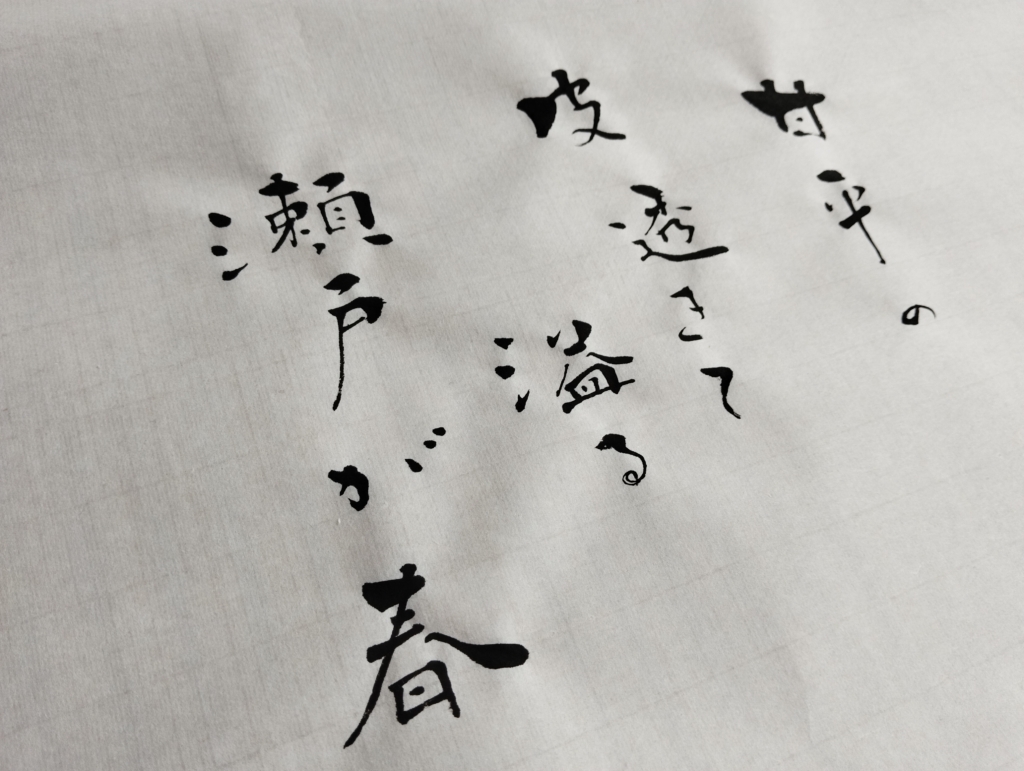 甘平の
皮透きて
溢る
瀬戸が春